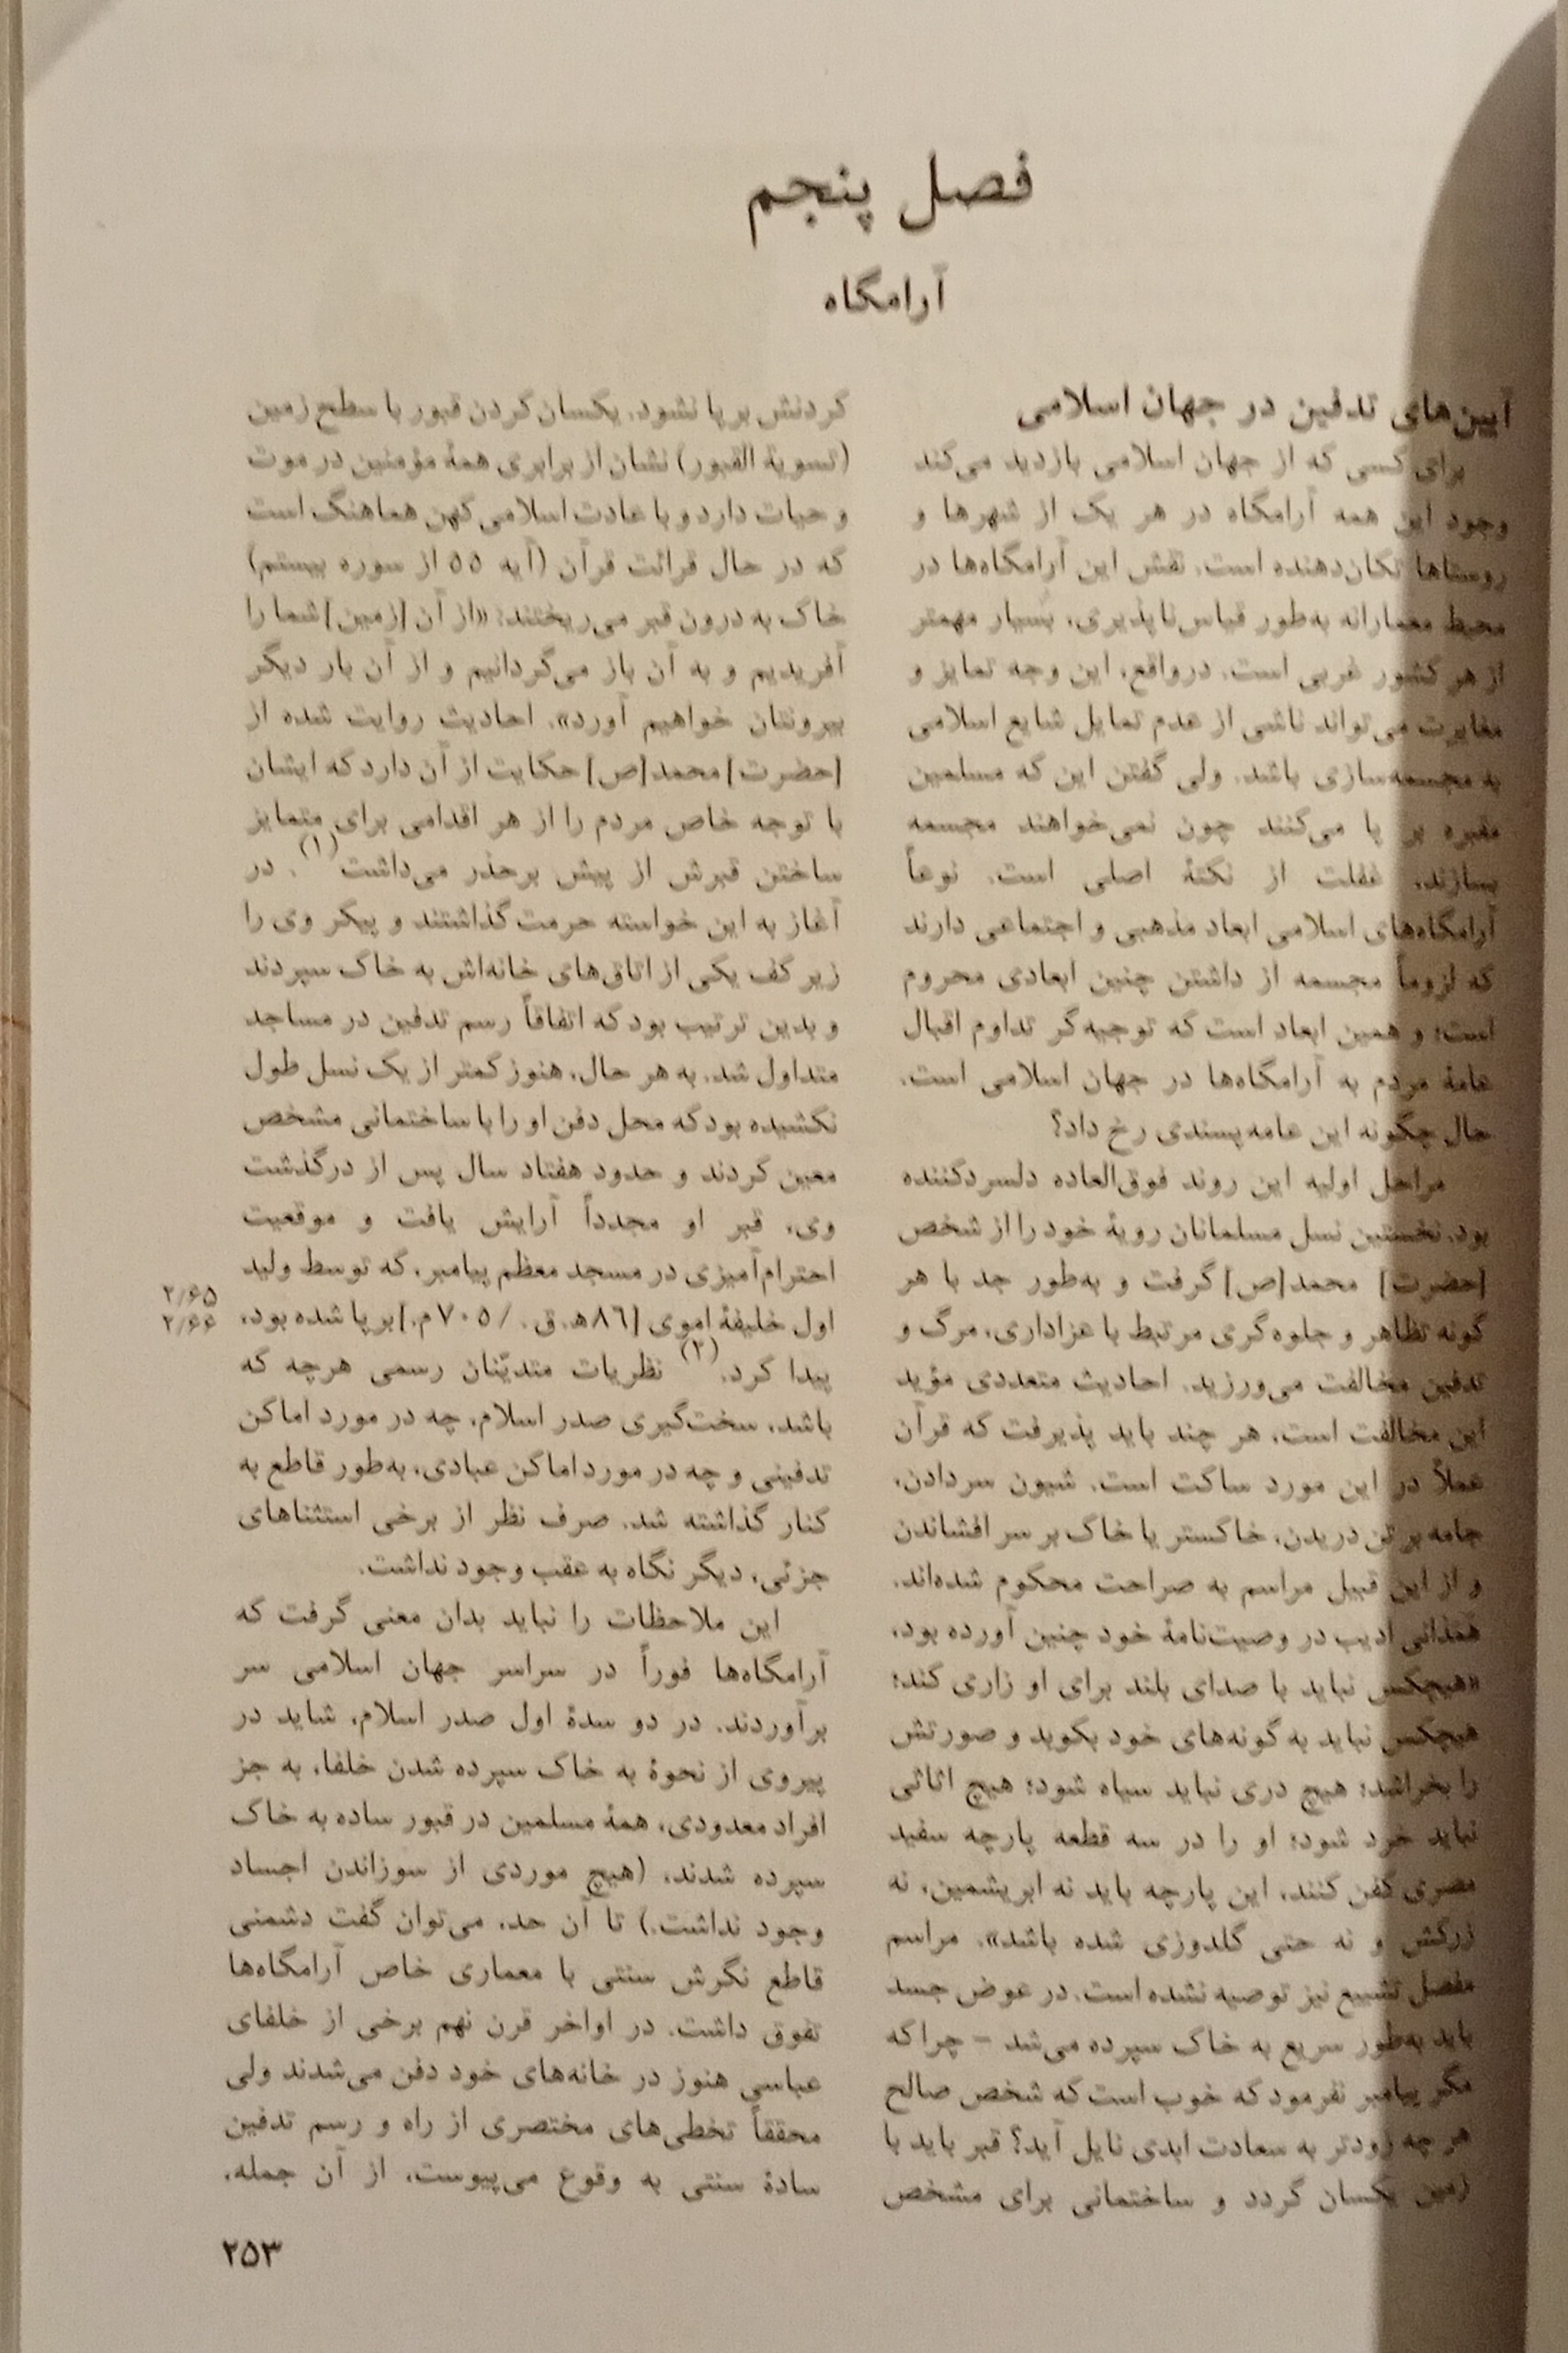 فصل پنجم
آرامگاه
آیین‌های تدفین در جهان اسلامی
برای کسی که از جهان اسلامی بازدید می‌کند
وجود این همه آرامگاه در هر یک از شهرها و
روستاها تکان‌دهنده است. نقش این آرامگاه‌ها در
محیط معمارانه به‌طور قیاس‌ناپذیری، بسیار مهمتر
از هر کشور غربی است. درواقع، این وجه تمایز و
مغایرت می‌تواند ناشی از عدم تمایل شایع اسلامی
به مجسمه‌سازی باشد. ولی گفتن این که مسلمین
مقبره بر پا می‌کنند چون نمی‌خواهند مجسمه
بسازند، غفلت از نکتهٔ اصلی است. نوعاً
آرامگاه‌های اسلامی ابعاد مذهبی و اجتماعی دارند
که لزوماً مجسمه از داشتن چنین ابعادی محروم
است؛ و همین ابعاد است که توجیه‌گر تداوم اقبال
عامهٔ مردم به آرامگاه‌ها در جهان اسلامی است.
حال چگونه این عامه‌پسندی رخ داد؟
مراحل اولیه این روند فوق‌العاده دلسردکننده
بود. نخستین نسل مسلمانان رویهٔ خود را از شخص
[حضرت] محمد[ص] گرفت و به‌طور جد با هر
گونه تظاهر و جلوه‌گری مرتبط با عزاداری، مرگ و
تدفین مخالفت می‌ورزید. احادیث متعددی مؤید
این مخالفت است، هر چند باید پذیرفت که قرآن
عملاً در این مورد ساکت است. شیون سردادن،
جامه بر تن دریدن، خاکستر یا خاک بر سر افشاندن
و از این قبیل مراسم به صراحت محکوم شده‌اند.
همدانی ادیب در وصیت‌نامهٔ خود چنین آورده بود،
«هیچکس نباید با صدای بلند برای او زاری کند؛
هیچکس نباید به گونه‌های خود بکوبد و صورتش
را بخراشد؛ هیچ دری نباید سیاه شود؛ هیچ اثاثی
نباید خرد شود؛ او را در سه قطعه پارچه سفید
مصری کفن کنند، این پارچه باید نه ابریشمین، نه
زرکش و نه حتی گلدوزی شده باشد». مراسم
مفصل تشییع نیز توصیه نشده است. در عوض جسد
باید به‌طور سریع به خاک سپرده می‌شد - چرا که
مگر پیامبر نفرمود که خوب است که شخص صالح
هر چه زودتر به سعادت ابدی نایل آید؟ قبر باید با
زمین یکسان گردد و ساختمانی برای مشخص
کردنش بر پا نشود. یکسان کردن قبور با سطح زمین
(تسویة القبور) نشان از برابری همهٔ مؤمنین در موت
و حیات دارد و با عادت اسلامی کهن هماهنگ است
که در حال قرائت قرآن (آیه ۵۵ از سوره بیستم)
خاک به درون قبر می‌ریختند: «از آن [زمین] شما را
آفریدیم و به آن باز می‌گردانیم و از آن بار دیگر
بیرونتان خواهیم آورد». احادیث روایت شده از
[حضرت] محمد[ص] حکایت از آن دارد که ایشان
با توجه خاص مردم را از هر اقدامی برای متمایز
ساختن قبرش از پیش برحذر می‌داشت(۱). در
آغاز به این خواسته حرمت گذاشتند و پیکر وی را
زیر کف یکی از اتاق‌های خانه‌اش به خاک سپردند
و بدین ترتیب بود که اتفاقاً رسم تدفین در مساجد
متداول شد. به هر حال، هنوز کمتر از یک نسل طول
نکشیده بود که محل دفن او را با ساختمانی مشخص
معین کردند و حدود هفتاد سال پس از درگذشت
وی، قبر او مجدداً آرایش یافت و موقعیت
احترام‌آمیزی در مسجد معظم پیامبر، که توسط ولید
اول خلیفهٔ اموی [۸۶ه‍.ق. / ۷۰۵م.] بر پا شده بود،
پیدا کرد.(۲) نظریات متدیّنان رسمی هرچه که
باشد، سخت‌گیری صدر اسلام، چه در مورد اماکن
تدفینی و چه در مورد اماکن عبادی، به‌طور قاطع به
کنار گذاشته شد. صرف نظر از برخی استثناهای
جزئی، دیگر نگاه به عقب وجود نداشت.
این ملاحظات را نباید بدان معنی گرفت که
آرامگاه‌ها فوراً در سراسر جهان اسلامی سر
برآوردند. در دو سدهٔ اول صدر اسلام، شاید در
پیروی از نحوهٔ به خاک سپرده شدن خلفا، به جز
افراد معدودی، همهٔ مسلمین در قبور ساده به خاک
سپرده شدند، (هیچ موردی از سوزاندن اجساد
وجود نداشت.) تا آن حد، می‌توان گفت دشمنی
قاطع نگرش سنتی با معماری خاص آرامگاه‌ها
تفوق داشت. در اواخر قرن نهم برخی از خلفای
عباسی هنوز در خانه‌های خود دفن می‌شدند ولی
محققاً تخطی‌های مختصری از راه و رسم تدفین
سادهٔ سنتی به وقوع می‌پیوست، از آن جمله،
۲/۶۵
۲/۶۶
۲۵۳